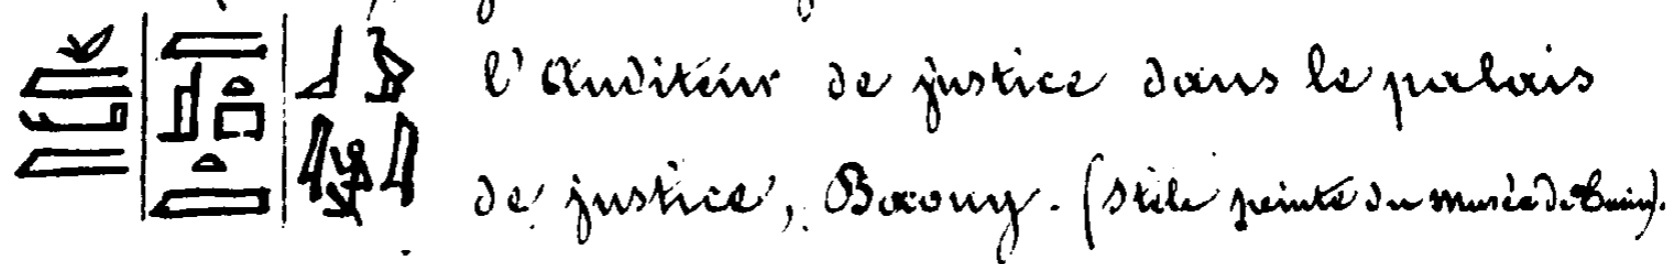 l'Auditeur de justice dans le palais
de justice, Baouy. (Stèle peinte du musée de Turin).